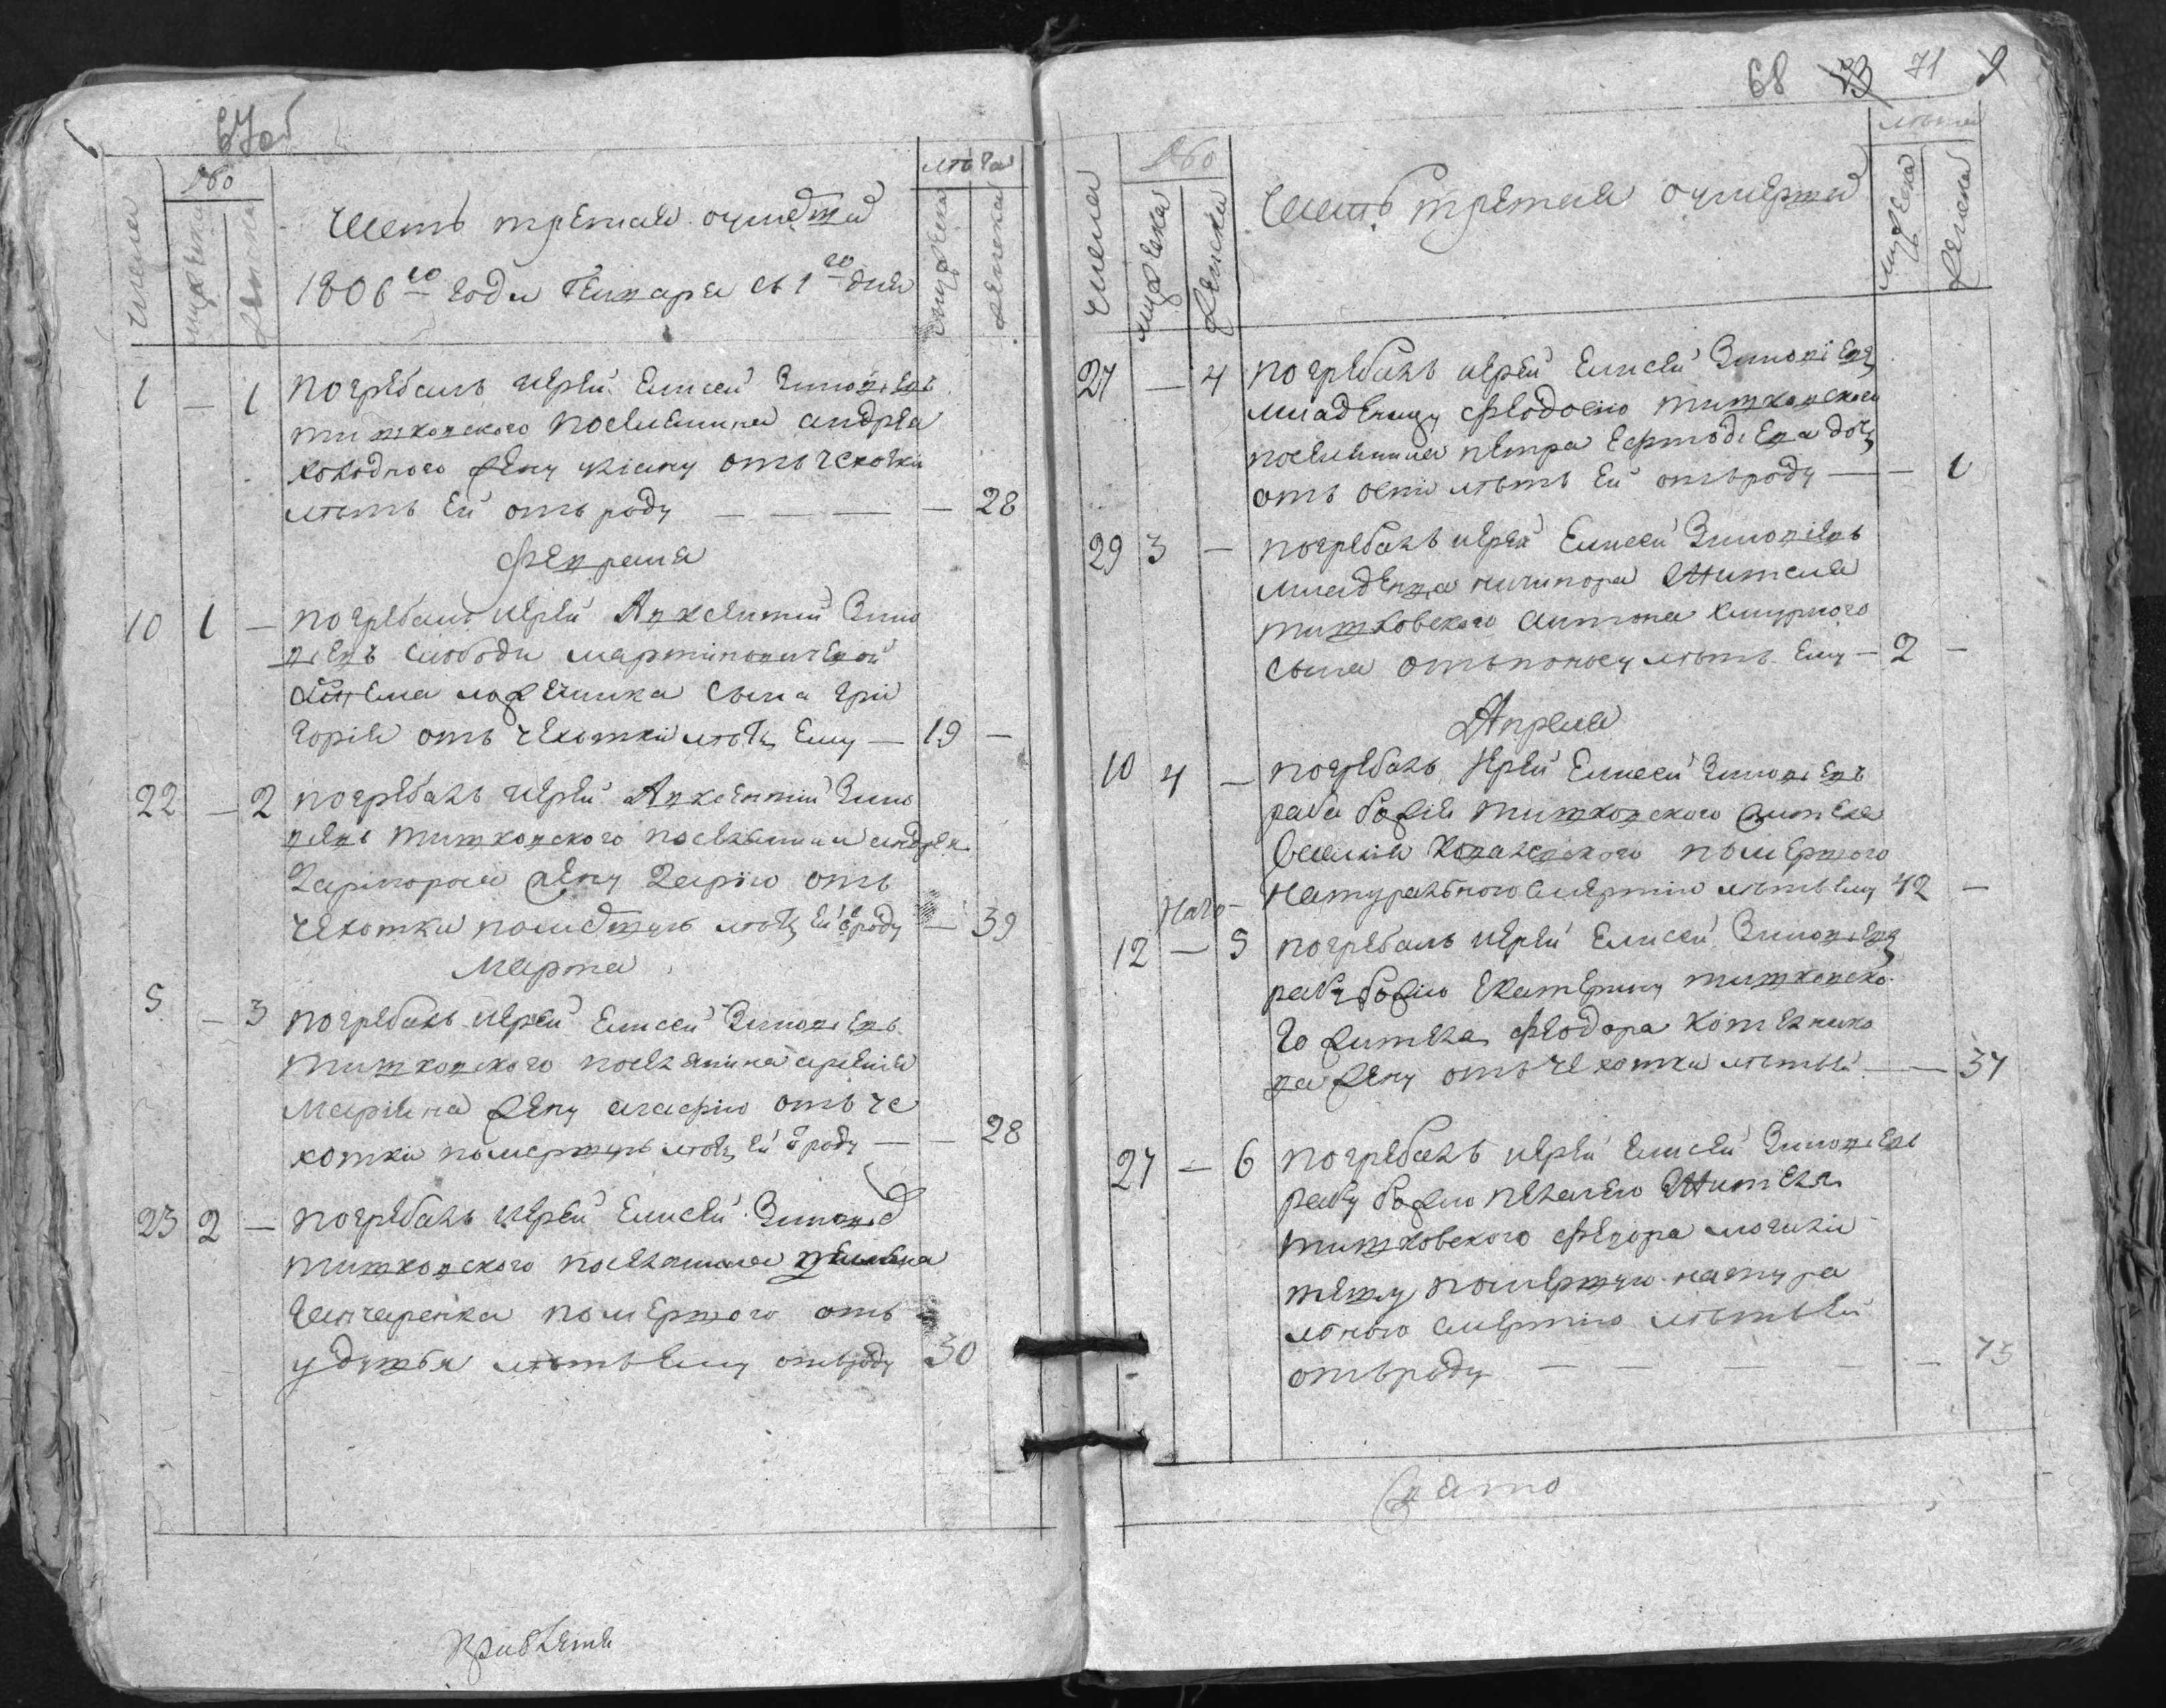 67об
Числа
№о
мужеска
женска
Часть третая о умершихъ
1806го года Генваря съ 1го дня
лѣта
мужеска
женска
1 — 1 погребалъ иерей Елисей Зиновіевъ
тишковского поселянина андрея
холодного жену уліану отъ чехотки
лѣтъ ей отъ роду — — — — 28
Февраля
10 1 — погребалъ иерей Авксентий Зино
віевъ слободи мартиновичевой
жителя сына гри
горія отъ чехотки лѣтъ ему — 19 —
22 — 2 погребалъ иерей Авксентий Зино
віевъ тишковского поселянина андрея
жену дарію отъ
чехотки помершую лѣтъ ей ѿ роду — 39
Марта
5 — 3 погребалъ иерей Елисей Зиновіевъ
тишковского поселянина
жену агафію отъ че
хотки помершую лѣтъ ей ѿ роду — — 28
23 2 — погребалъ иерей Елисей Зиновіев
тишковского поселянина
Ганчаренка помершого отъ
удушья лѣтъ ему отъ роду 30
68 71
Числа
№о
мужеска
женска
Часть третая о умершихъ
лѣта
мужеска
женска
27 — 4 погребалъ иерей Елисей Зиновіевъ
младеницу феодосію тишковского
поселянина петра дочь
отъ оспи лѣтъ ей отъ роду — — 1
29 3 — погребалъ иерей Елисей Зиновіевъ
младенца ничипора жителя
тишковского антона
сына отъ поносу лѣтъ ему — 2 —
Апреля
10 4 — погребалъ Иерей Елисей Зиновіевъ
раба божія тишковского жителя
василія помершого
натуральною смертію лѣтъ ему 42 —
12 — 5 погребалъ иерей Елисей Зиновіевъ
рабу божію Екатерину тишковско
го жителя феодора Котелнико
ва жену отъ чехотки лѣтъ ей — — 37
27 — 6 погребалъ иерей Елисей Зиновіевъ
рабу божію пелагею жителя
тишковского федора
тещу помершую натура
лною смертію лѣтъ ей
отъ роду — — — — — 75